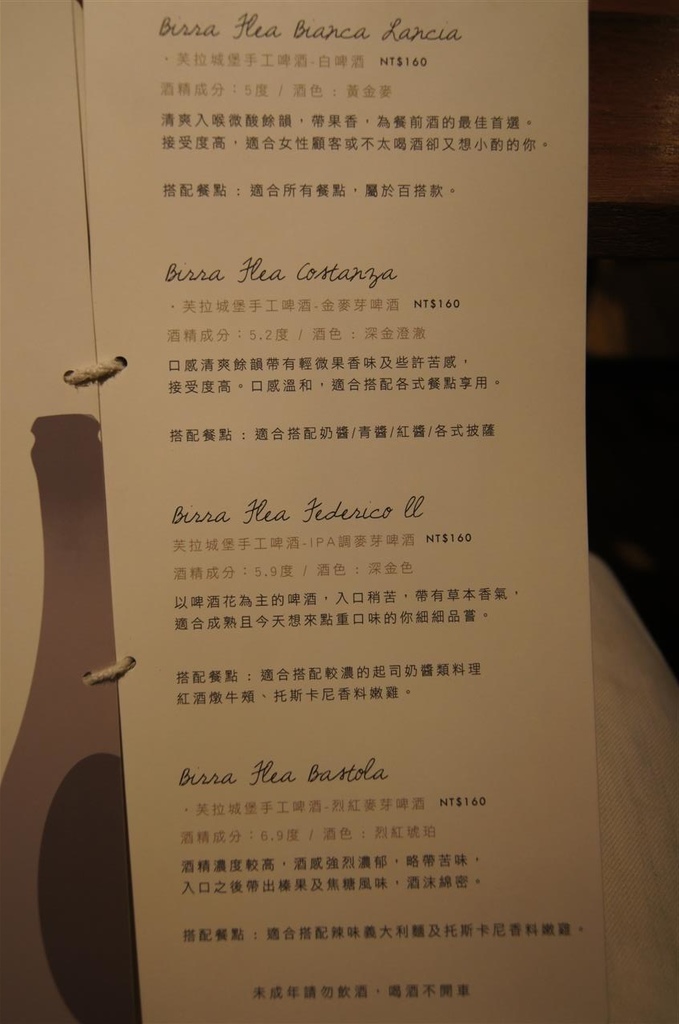 Birra Flea Bianca Lancia
・芙拉城堡手工啤酒-白啤酒 NT$160
酒精成分：5度 / 酒色：黃金麥
清爽入喉微酸餘韻，帶果香，為餐前酒的最佳首選。
接受度高，適合女性顧客或不太喝酒卻又想小酌的你。
搭配餐點：適合所有餐點，屬於百搭款。
Birra Flea Costanza
・芙拉城堡手工啤酒-金麥芽啤酒 NT$160
酒精成分：5.2度 / 酒色：深金澄澈
口感清爽餘韻帶有輕微果香味及些許苦感，
接受度高。口感溫和，適合搭配各式餐點享用。
搭配餐點：適合搭配奶醬/青醬/紅醬/各式披薩
Birra Flea Federico ll
芙拉城堡手工啤酒-IPA調麥芽啤酒 NT$160
酒精成分：5.9度 / 酒色：深金色
以啤酒花為主的啤酒，入口稍苦，帶有草本香氣，
適合成熟且今天想來點重口味的你細細品嘗。
搭配餐點：適合搭配較濃的起司奶醬類料理
紅酒燉牛頰、托斯卡尼香料嫩雞。
Birra Flea Bastola
・芙拉城堡手工啤酒-烈紅麥芽啤酒 NT$160
酒精成分：6.9度 / 酒色：烈紅琥珀
酒精濃度較高，酒感強烈濃郁，略帶苦味，
入口之後帶出榛果及焦糖風味，酒沫綿密。
搭配餐點：適合搭配辣味義大利麵及托斯卡尼香料嫩雞。
未成年請勿飲酒，喝酒不開車